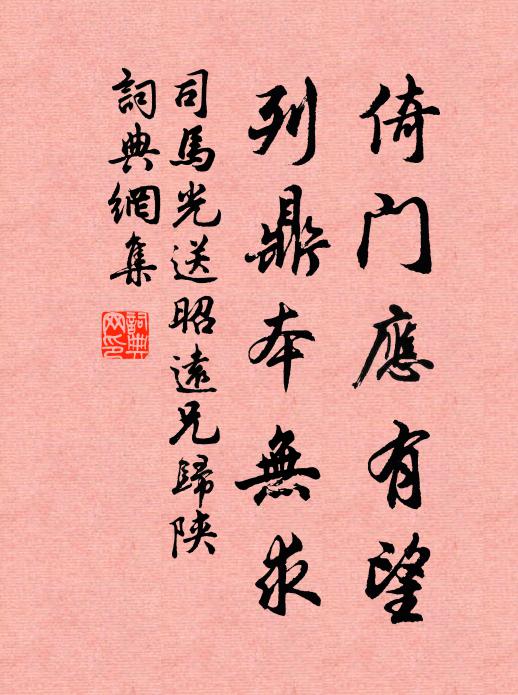 倚門應有望
列鼎本無求
司馬光送昭遠兄歸陝
詞典網集
詞典
网印